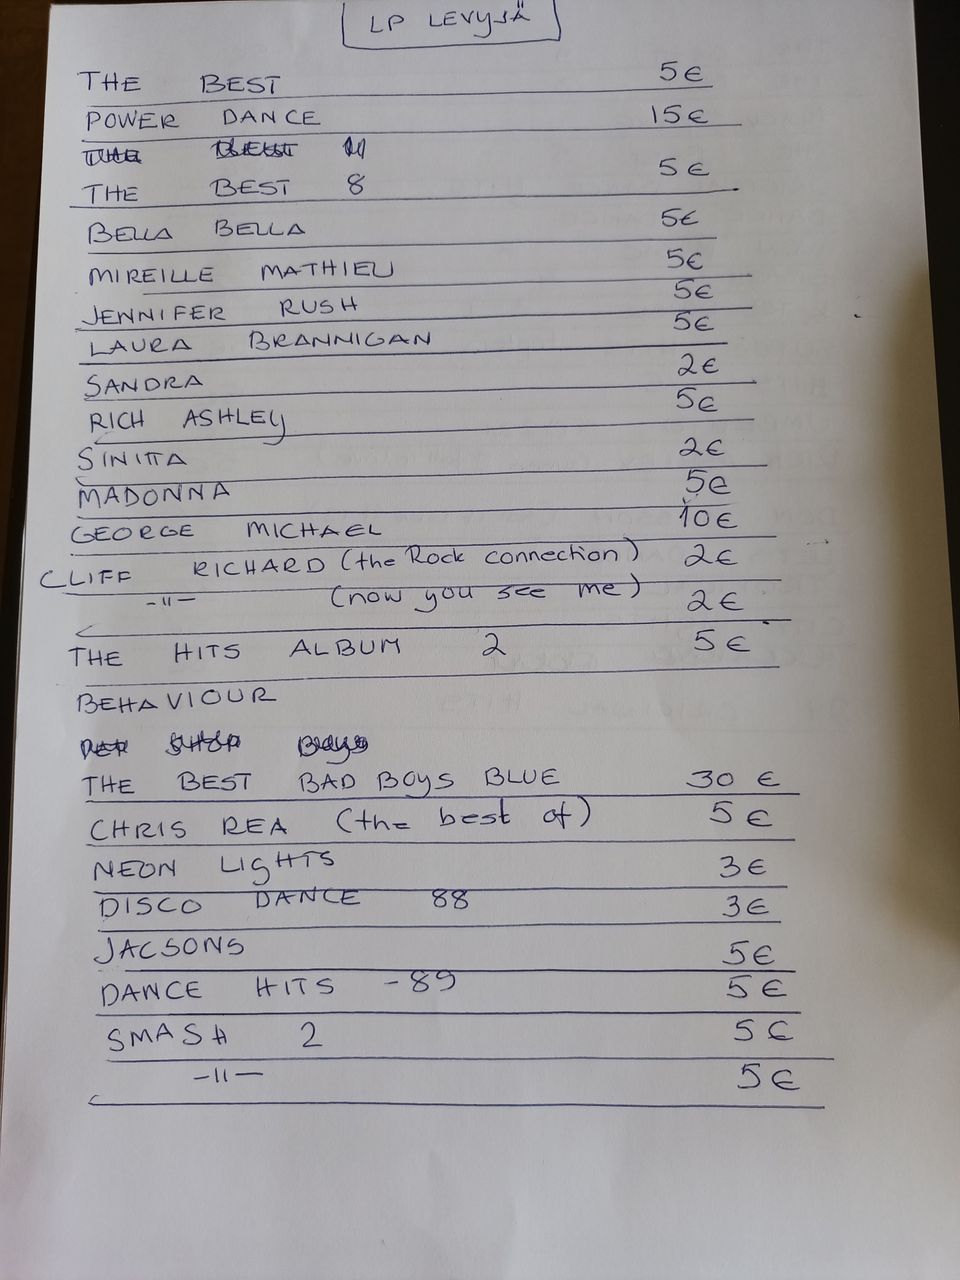 LP LEVYJÄ
THE BEST 5€
POWER DANCE 15€
THE BEST 8 5€
BELLA BELLA 5€
MIREILLE MATHIEU 5€
JENNIFER RUSH 5€
LAURA BRANNIGAN 5€
SANDRA 2€
RICH ASHLEY 5€
SINITTA 2€
MADONNA 5€
GEORGE MICHAEL 10€
CLIFF RICHARD (the Rock connection) 2€
-11- (now you see me) 2€
THE HITS ALBUM 2 5€
BEHAVIOUR
THE BEST BAD BOYS BLUE 30 €
CHRIS REA (the best of) 5€
NEON LIGHTS 3€
DISCO DANCE 88 3€
JACSONS 5€
DANCE HITS -89 5€
SMASH 2 5€
-11- 5€